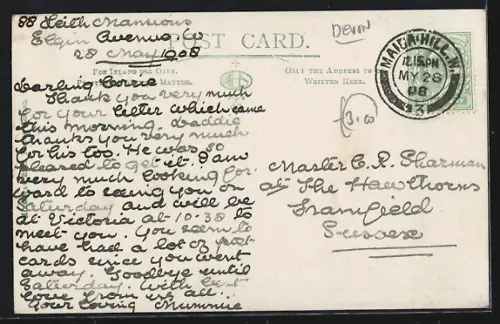 88 Leith Mansions
Elgin Avenue W
28 May 1908
POST CARD.
DEVON
FOR INLAND USE ONLY.
MATTER.
ONLY THE ADDRESS TO
WRITTEN HERE.
MAIDA-HILL.W.
12.15PM
MY 28
08
3
Darling Corrie
Thank you very much
for your letter which came
this morning. Laddie
thanks you very much
for his too. He was so
pleased to get it. I am
very much looking for-
ward to seeing you on
Saturday and will be
at Victoria at 10-38 to
meet you. You seem to
have had a lot of post
cards since you went
away. Goodbye until
Saturday. With best
love from us all.
Your loving Mummie
Master C. R. Sharman
at The Hawthorns
Framfield
Sussex